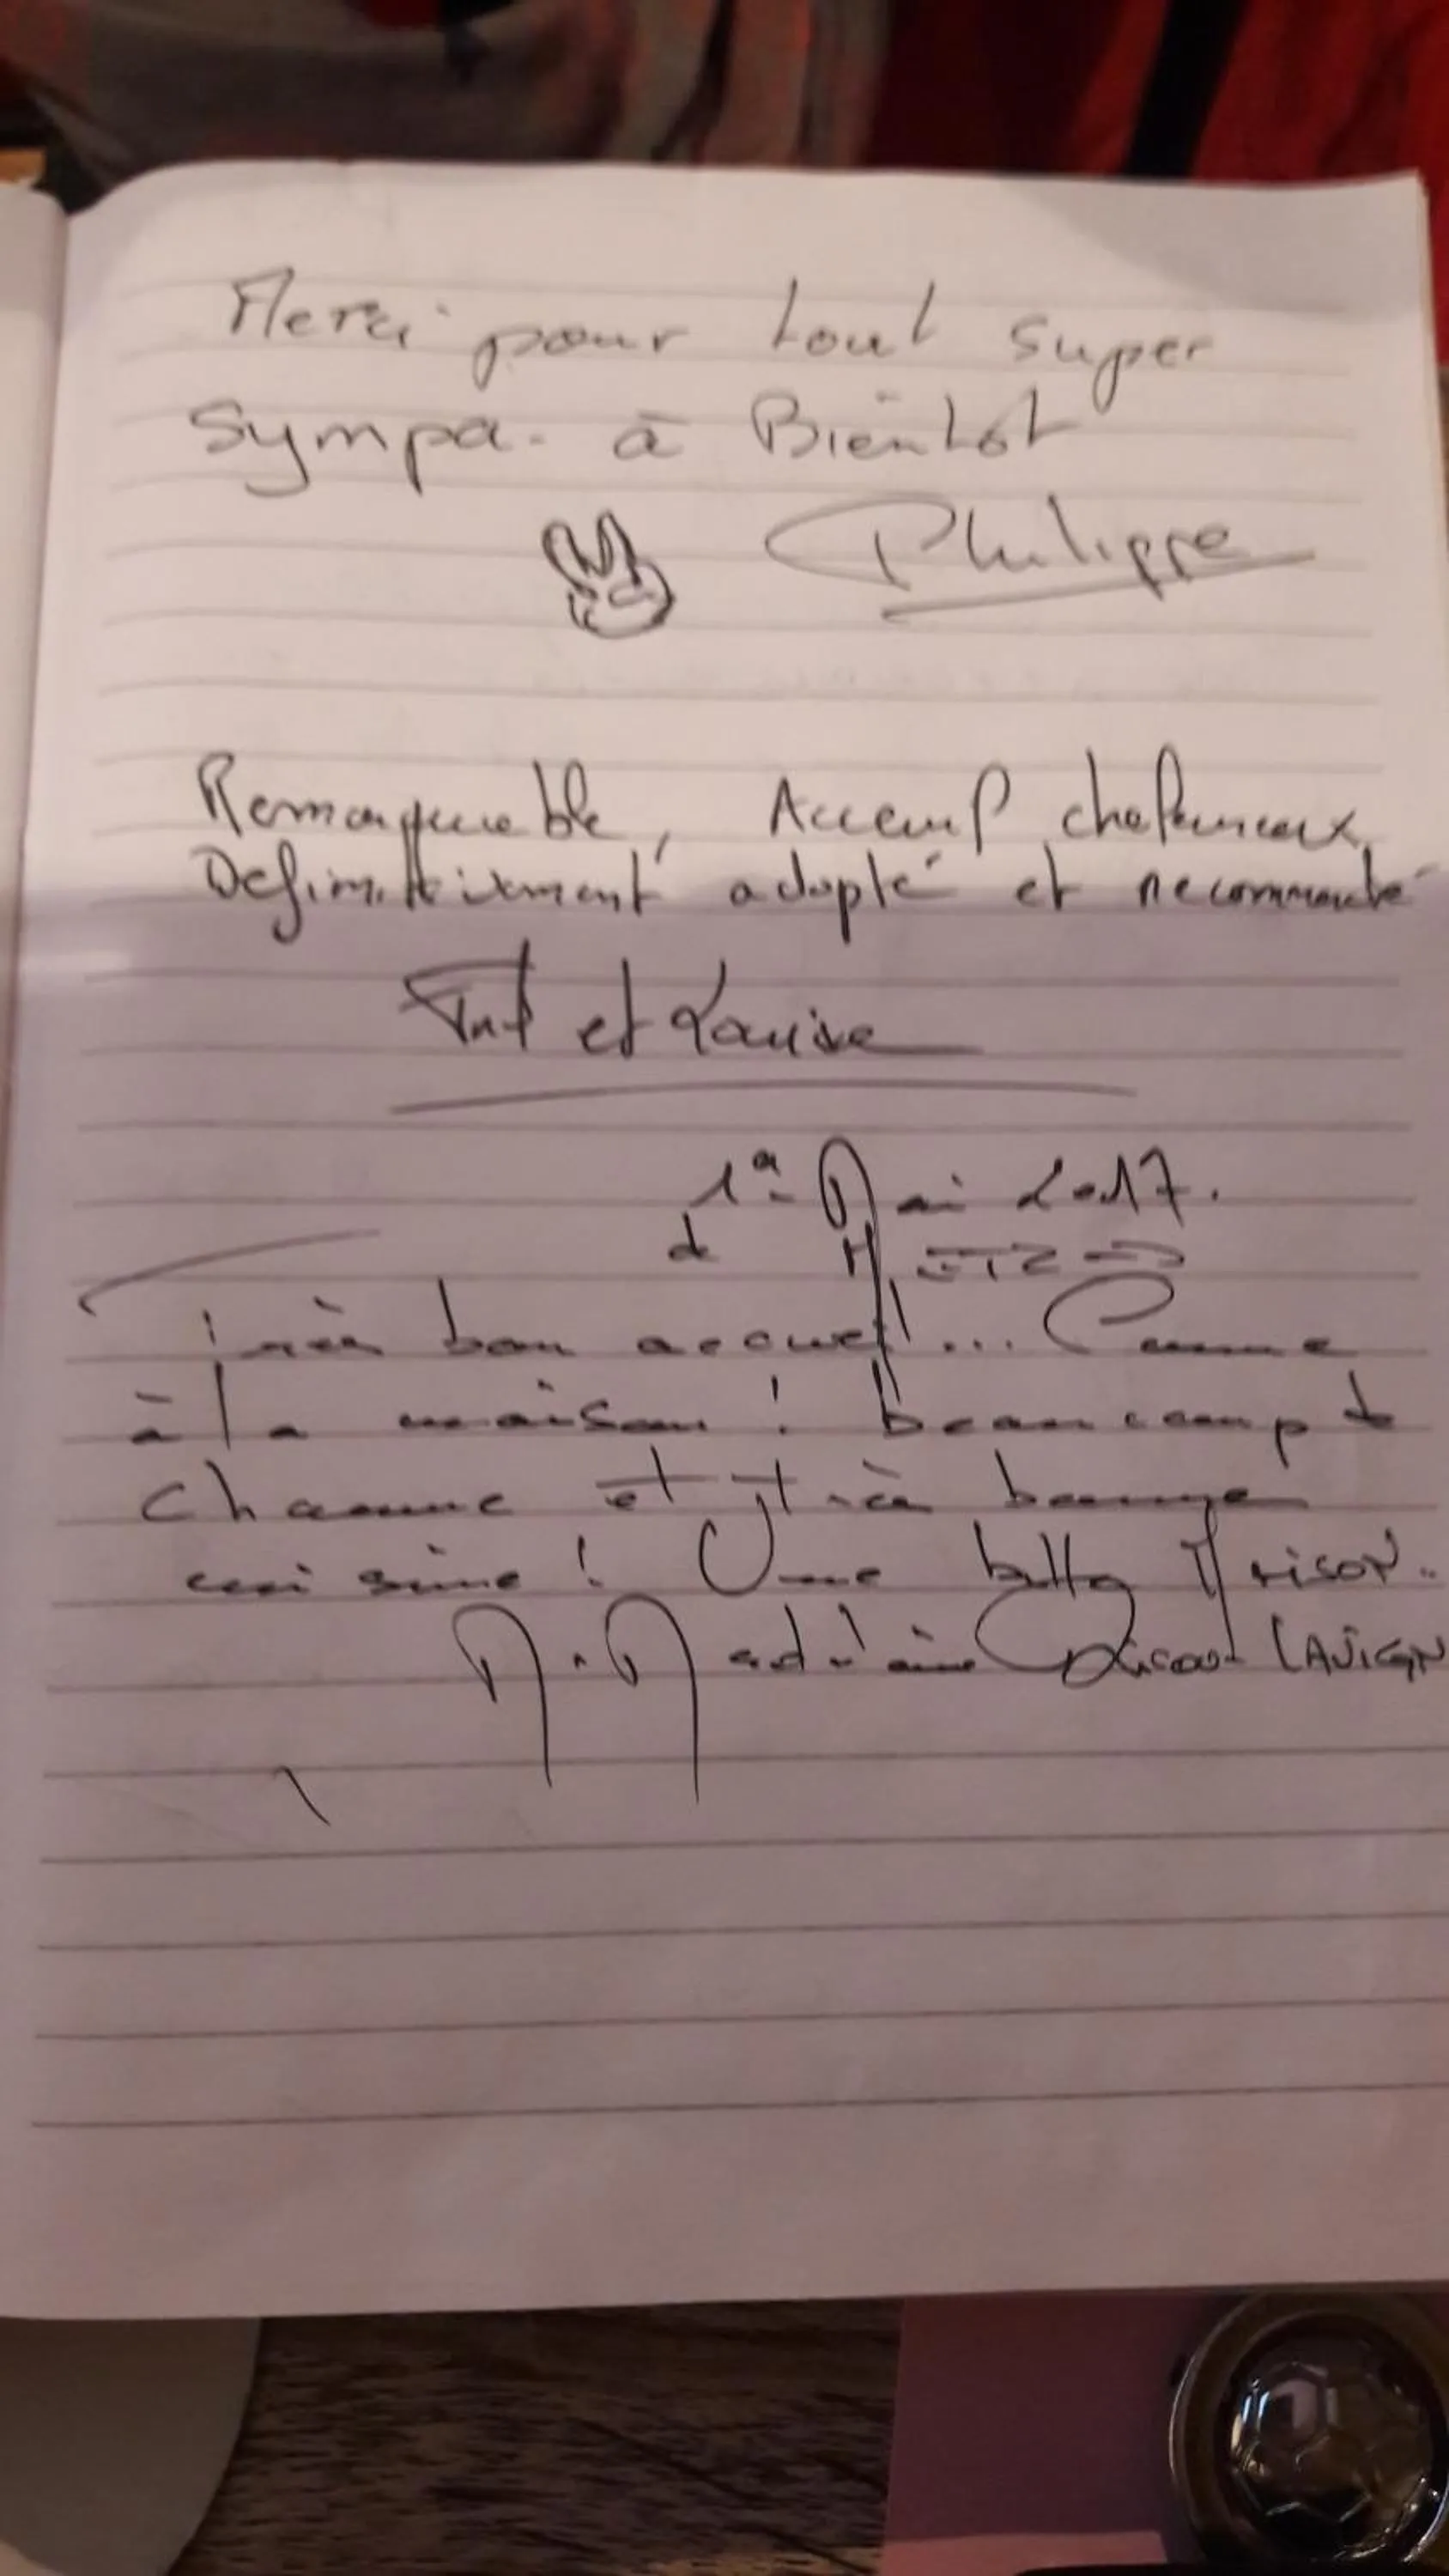 Merci pour tout super
Sympa. à Bientôt
Philippe
Remarquable, Accueil chaleureux,
Definittivement adopté et recommandé
et Louise
1er Mai 2017.
de METZ
Très bon accueil!... Comme
à la maison! Beaucoup de
charme et très bonne
cuisine! Une belle Maison.
LAVIGN